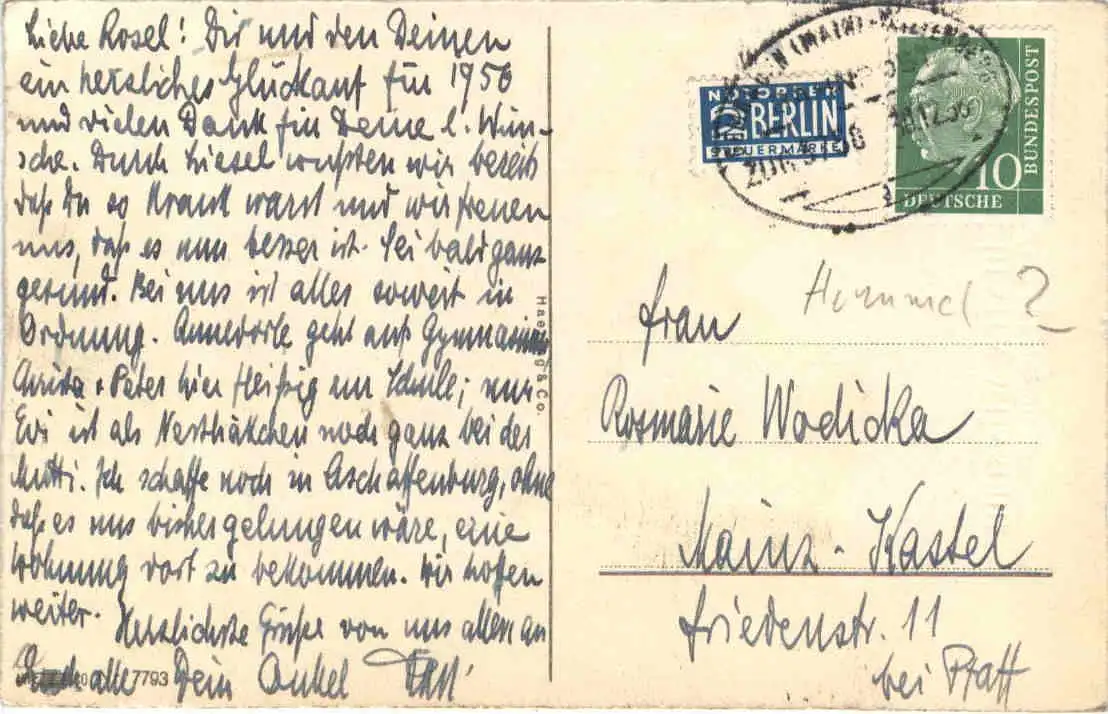 Liebe Rosel! Dir und den Deinen
ein herzliches Glückauf für 1956
und vielen Dank für Deine l. Wün-
sche. Durch Liesel wußten wir bereits
daß Du so krank warst und wir freuen
uns, daß es nun besser ist. Sei bald ganz
gesund. Bei uns ist alles soweit in
Ordnung. Annedorle geht aufs Gymnasium
Anita + Peter hier fleißig zur Schule; nur
Evi ist als Nesthäkchen noch ganz bei der
Mutti. Ich schaffe noch in Aschaffenburg, ohne
daß es uns bisher gelungen wäre, eine
Wohnung dort zu bekommen. Wir hoffen
weiter.
Herzlichste Grüße von uns allen an
Euch alle Dein Onkel
7793
Haenig & Co.
NOTOPFER
2 BERLIN
STEUERMARKE
(MAIN)-MILTENBERG
ZUG
.12.55
10
DEUTSCHE
BUNDESPOST
Hummel ?
Frau
Rosmarie Wodicka
Mainz-Kastel
Friedenstr. 11
bei Pfaff